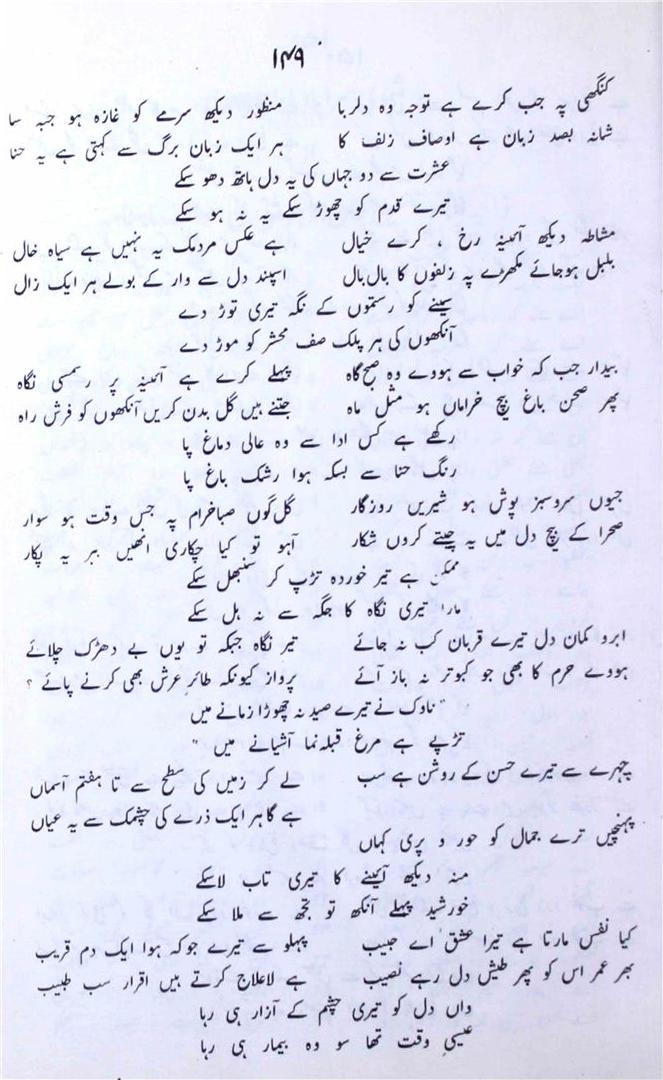 ۱۴۹
کنگھی پہ جب کرے ہے توجہ وہ دلربا منظور دیکھ سرمے کو غازہ ہو جبہ سا
شانہ بصد زبان ہے اوصاف زلف کا ہر ایک زبان برگ سے کہتی ہے یہ حنا
عشرت سے دو جہاں کی یہ دل ہاتھ دھو سکے
تیرے قدم کو چھوڑ سکے یہ نہ ہو سکے
مشاطہ دیکھ آئینہ رخ ، کرے خیال ہے عکس مردمک یہ نہیں ہے سیاہ خال
بلبل ہوجائے مکھڑے پہ زلفوں کا بال بال اسپند دل سے وار کے بولے ہر ایک زال
سینے کو رستموں کے نگہ تیری توڑ دے
آنکھوں کی ہر پلک صف محشر کو موڑ دے
بیدار جب کہ خواب سے ہووے وہ صبح گاہ پہلے کرے ہے آئینہ پر رسمسی نگاہ
پھر صحن باغ بیچ خراماں ہو مثل ماہ جتنے ہیں گل بدن کریں آنکھوں کو فرش راہ
رکھے ہے کس ادا سے وہ عالی دماغ پا
رنگ حنا سے بسکہ ہوا رشک باغ پا
جیوں سروسبز پوش ہو شیریں روزگار گل گوں صباخرام پہ جس وقت ہو سوار
صحرا کے بیچ دل میں یہ چیتے کروں شکار آہو تو کیا چکاری اٹھیں ببر یہ پکار
ممکن ہے تیر خوردہ تڑپ کر سنبھل سکے
مارا تیری نگاہ کا جگہ سے نہ ہل سکے
ابرو کمان دل تیرے قرباں کب نہ جائے تیر نگاہ جبکہ تو یوں بے دھڑک چلائے
ہووے حرم کا بھی جو کبوتر نہ باز آئے پرواز کیونکہ طائر عرش بھی کرنے پائے ؟
"ناوک نے تیرے صید نہ چھوڑا زمانے میں
تڑپے ہے مرغ قبلہ نما آشیانے میں"
چہرے سے تیرے حسن کے روشن ہے سب لے کر زمیں کی سطح سے تا ہفتم آسماں
پہنچیں ترے جمال کو حور و پری کہاں ہے گا ہر ایک ذرے کی چشمک سے یہ عیاں
منہ دیکھ آئینے کا تیری تاب لا سکے
خورشید پہلے آنکھ تو تجھ سے ملا سکے
کیا نفس مارتا ہے تیرا عشق اے حبیب پہلو سے تیرے جو کہ ہوا ایک دم قریب
بھر عمر اس کو پھر طپش دل رہے نصیب ہے لاعلاج کرتے ہیں اقرار سب طبیب
واں دل کو تیری چشم کے آزار ہی رہا
عیسیٰ وقت تھا سو وہ بیمار ہی رہا